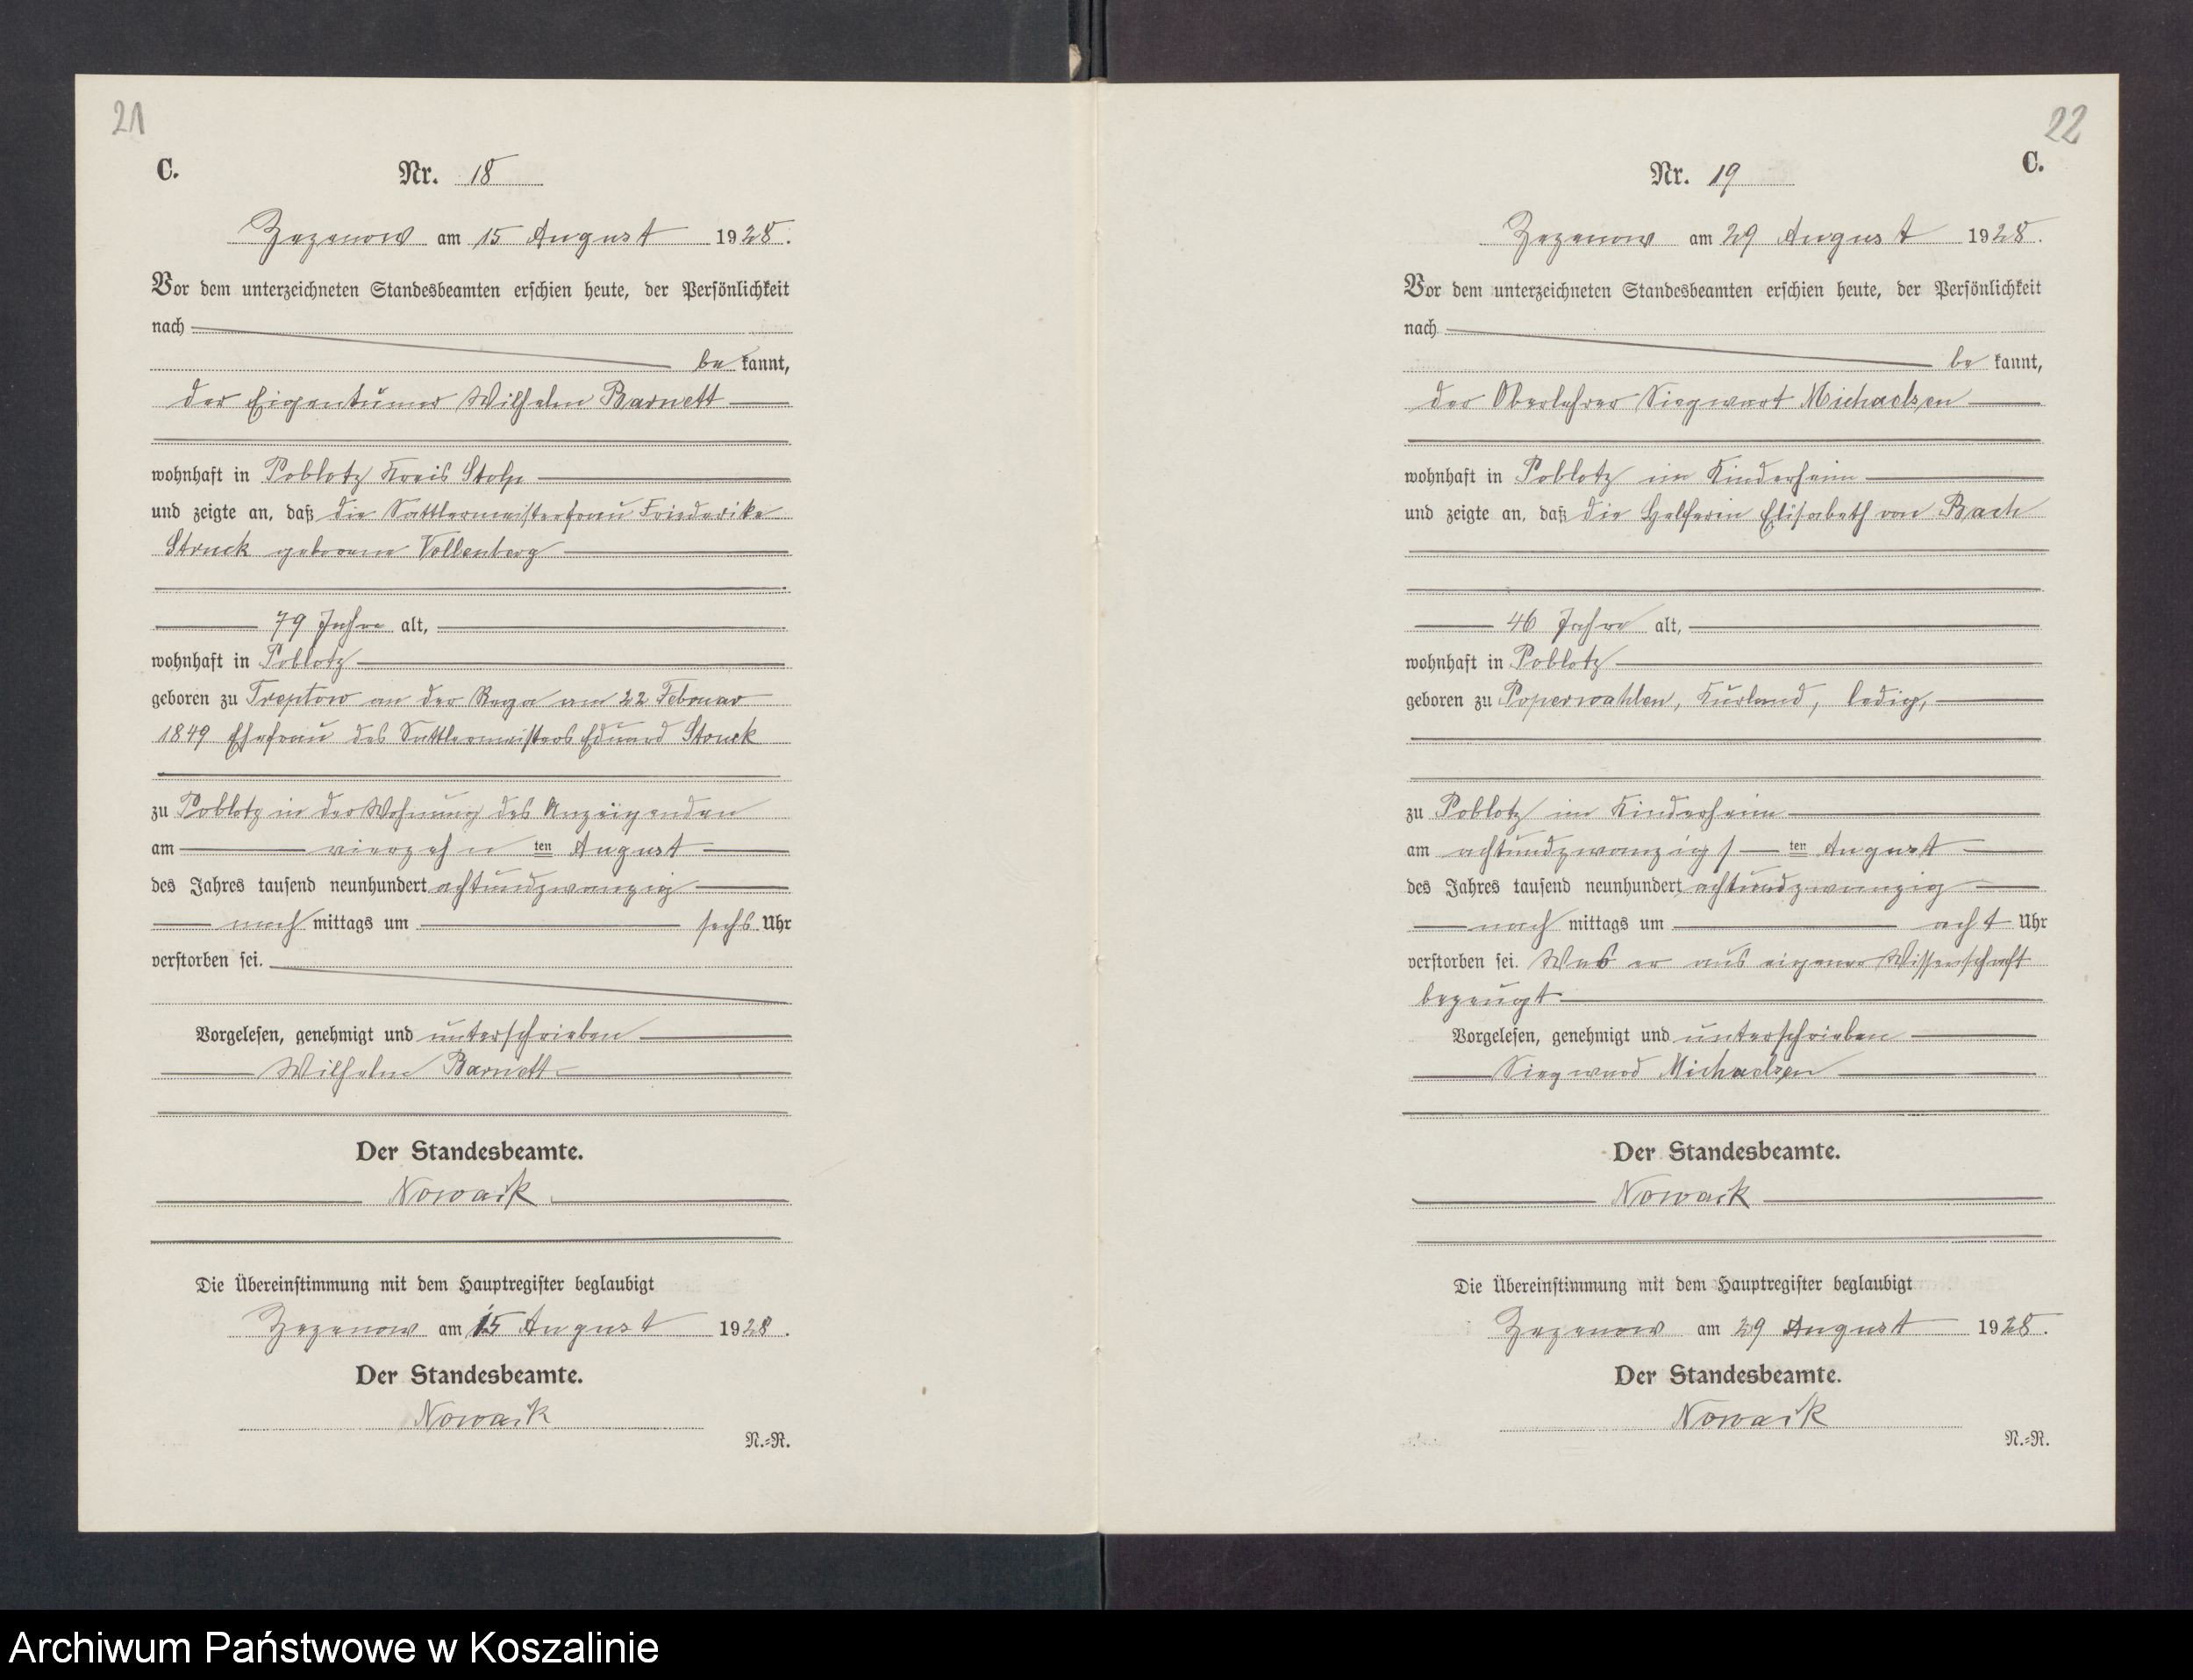 21
C.
Nr. 18
Zezenow am 15 August 1928.
Vor dem unterzeichneten Standesbeamten erschien heute, der Persönlichkeit
nach
be kannt,
der Eigentümer Wilhelm Barnett
wohnhaft in Poblotz Kreis Stolp
und zeigte an, daß die Sattlermeisterfrau Friederike
Struck geborene Vellenberg
79 Jahre alt,
wohnhaft in Poblotz
geboren zu Treptow an der Rega am 22 Februar
1849 Ehefrau des Sattlermeisters Eduard Struck
zu Poblotz in der Wohnung des Anzeigenden
am vierzehn ten August
des Jahres tausend neunhundert achtundzwanzig
nach mittags um sechs Uhr
verstorben sei.
Vorgelesen, genehmigt und unterschrieben
Wilhelm Barnett
Der Standesbeamte.
Nowack
Die Übereinstimmung mit dem Hauptregister beglaubigt
Zezenow am 15 August 1928.
Der Standesbeamte.
Nowack
N.-R.
22
C.
Nr. 19
Zezenow am 29 August 1928.
Vor dem unterzeichneten Standesbeamten erschien heute, der Persönlichkeit
nach
be kannt,
der Oberlehrer Siegwart Michaelsen
wohnhaft in Poblotz im Kinderheim
und zeigte an, daß die Helferin Elisabeth von Bach
46 Jahre alt,
wohnhaft in Poblotz
geboren zu Poperwahlen, Kurland, ledig,
zu Poblotz im Kinderheim
am achtundzwanzigs ten August
des Jahres tausend neunhundert achtundzwanzig
nach mittags um acht Uhr
verstorben sei. Was er aus eigener Wissenschaft
bezeugt
Vorgelesen, genehmigt und unterschrieben
Siegward Michaelsen
Der Standesbeamte.
Nowack
Die Übereinstimmung mit dem Hauptregister beglaubigt
Zezenow am 29 August 1928.
Der Standesbeamte.
Nowack
N.-R.
Archiwum Państwowe w Koszalinie